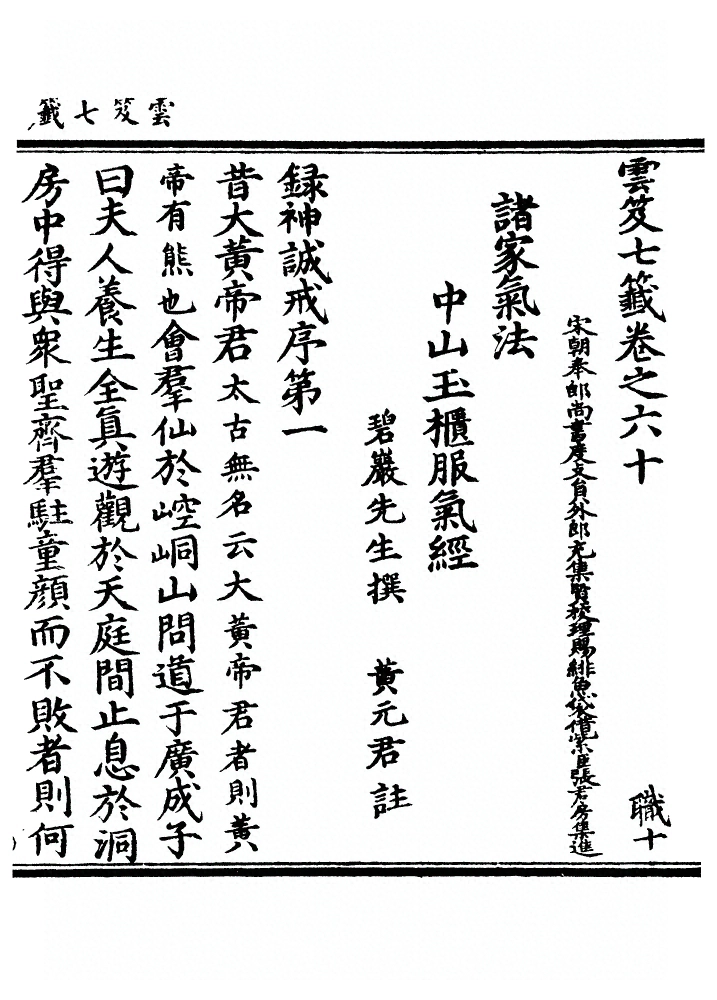 雲笈七籤
雲笈七籤卷之六十
職十
宋朝奉郎尚書度支員外郎充集賢校理賜緋魚袋借紫臣張君房集進
諸家氣法
中山玉櫃服氣經
碧巖先生撰 黃元君註
録神誡戒序第一
昔大黃帝君太古無名云大黃帝君者則黃
帝有熊也會羣仙於崆峒山問道于廣成子
曰夫人養生全眞遊觀於天庭間止息於洞
房中得與衆聖齊羣駐童顔而不敗者則何